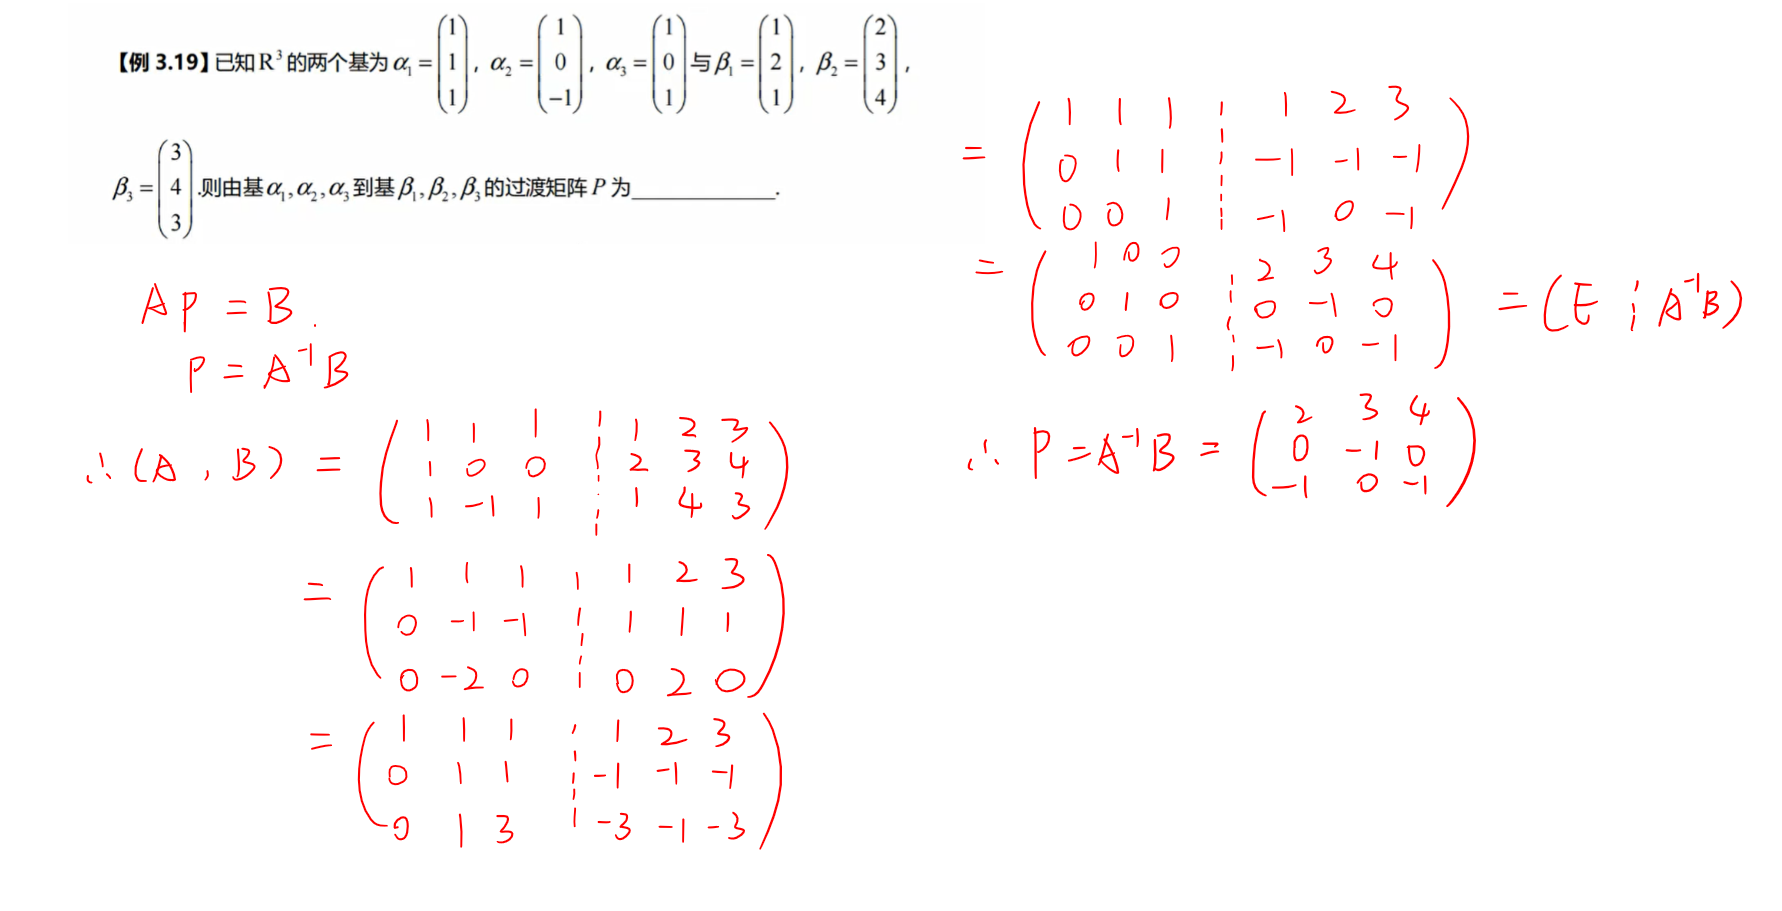 【例 3.19】已知 R³ 的两个基为 α₁ = (1 1 1), α₂ = (1 0 −1), α₃ = (1 0 1) 与 β₁ = (1 2 1), β₂ = (2 3 4),
β₃ = (3 4 3) .则由基 α₁, α₂, α₃ 到基 β₁, β₂, β₃ 的过渡矩阵 P 为____________.
AP = B.
P = A⁻¹B
∴ (A , B) = ( 1 1 1 ¦ 1 2 3
1 0 0 ¦ 2 3 4
1 -1 1 ¦ 1 4 3 )
= ( 1 1 1 ¦ 1 2 3
0 -1 -1 ¦ 1 1 1
0 -2 0 ¦ 0 2 0 )
= ( 1 1 1 ¦ 1 2 3
0 1 1 ¦ -1 -1 -1
0 1 3 ¦ -3 -1 -3 )
= ( 1 1 1 ¦ 1 2 3
0 1 1 ¦ -1 -1 -1
0 0 1 ¦ -1 0 -1 )
= ( 1 0 0 ¦ 2 3 4
0 1 0 ¦ 0 -1 0
0 0 1 ¦ -1 0 -1 ) = (E ¦ A⁻¹B)
∴ P = A⁻¹B = ( 2 3 4
0 -1 0
-1 0 -1 )